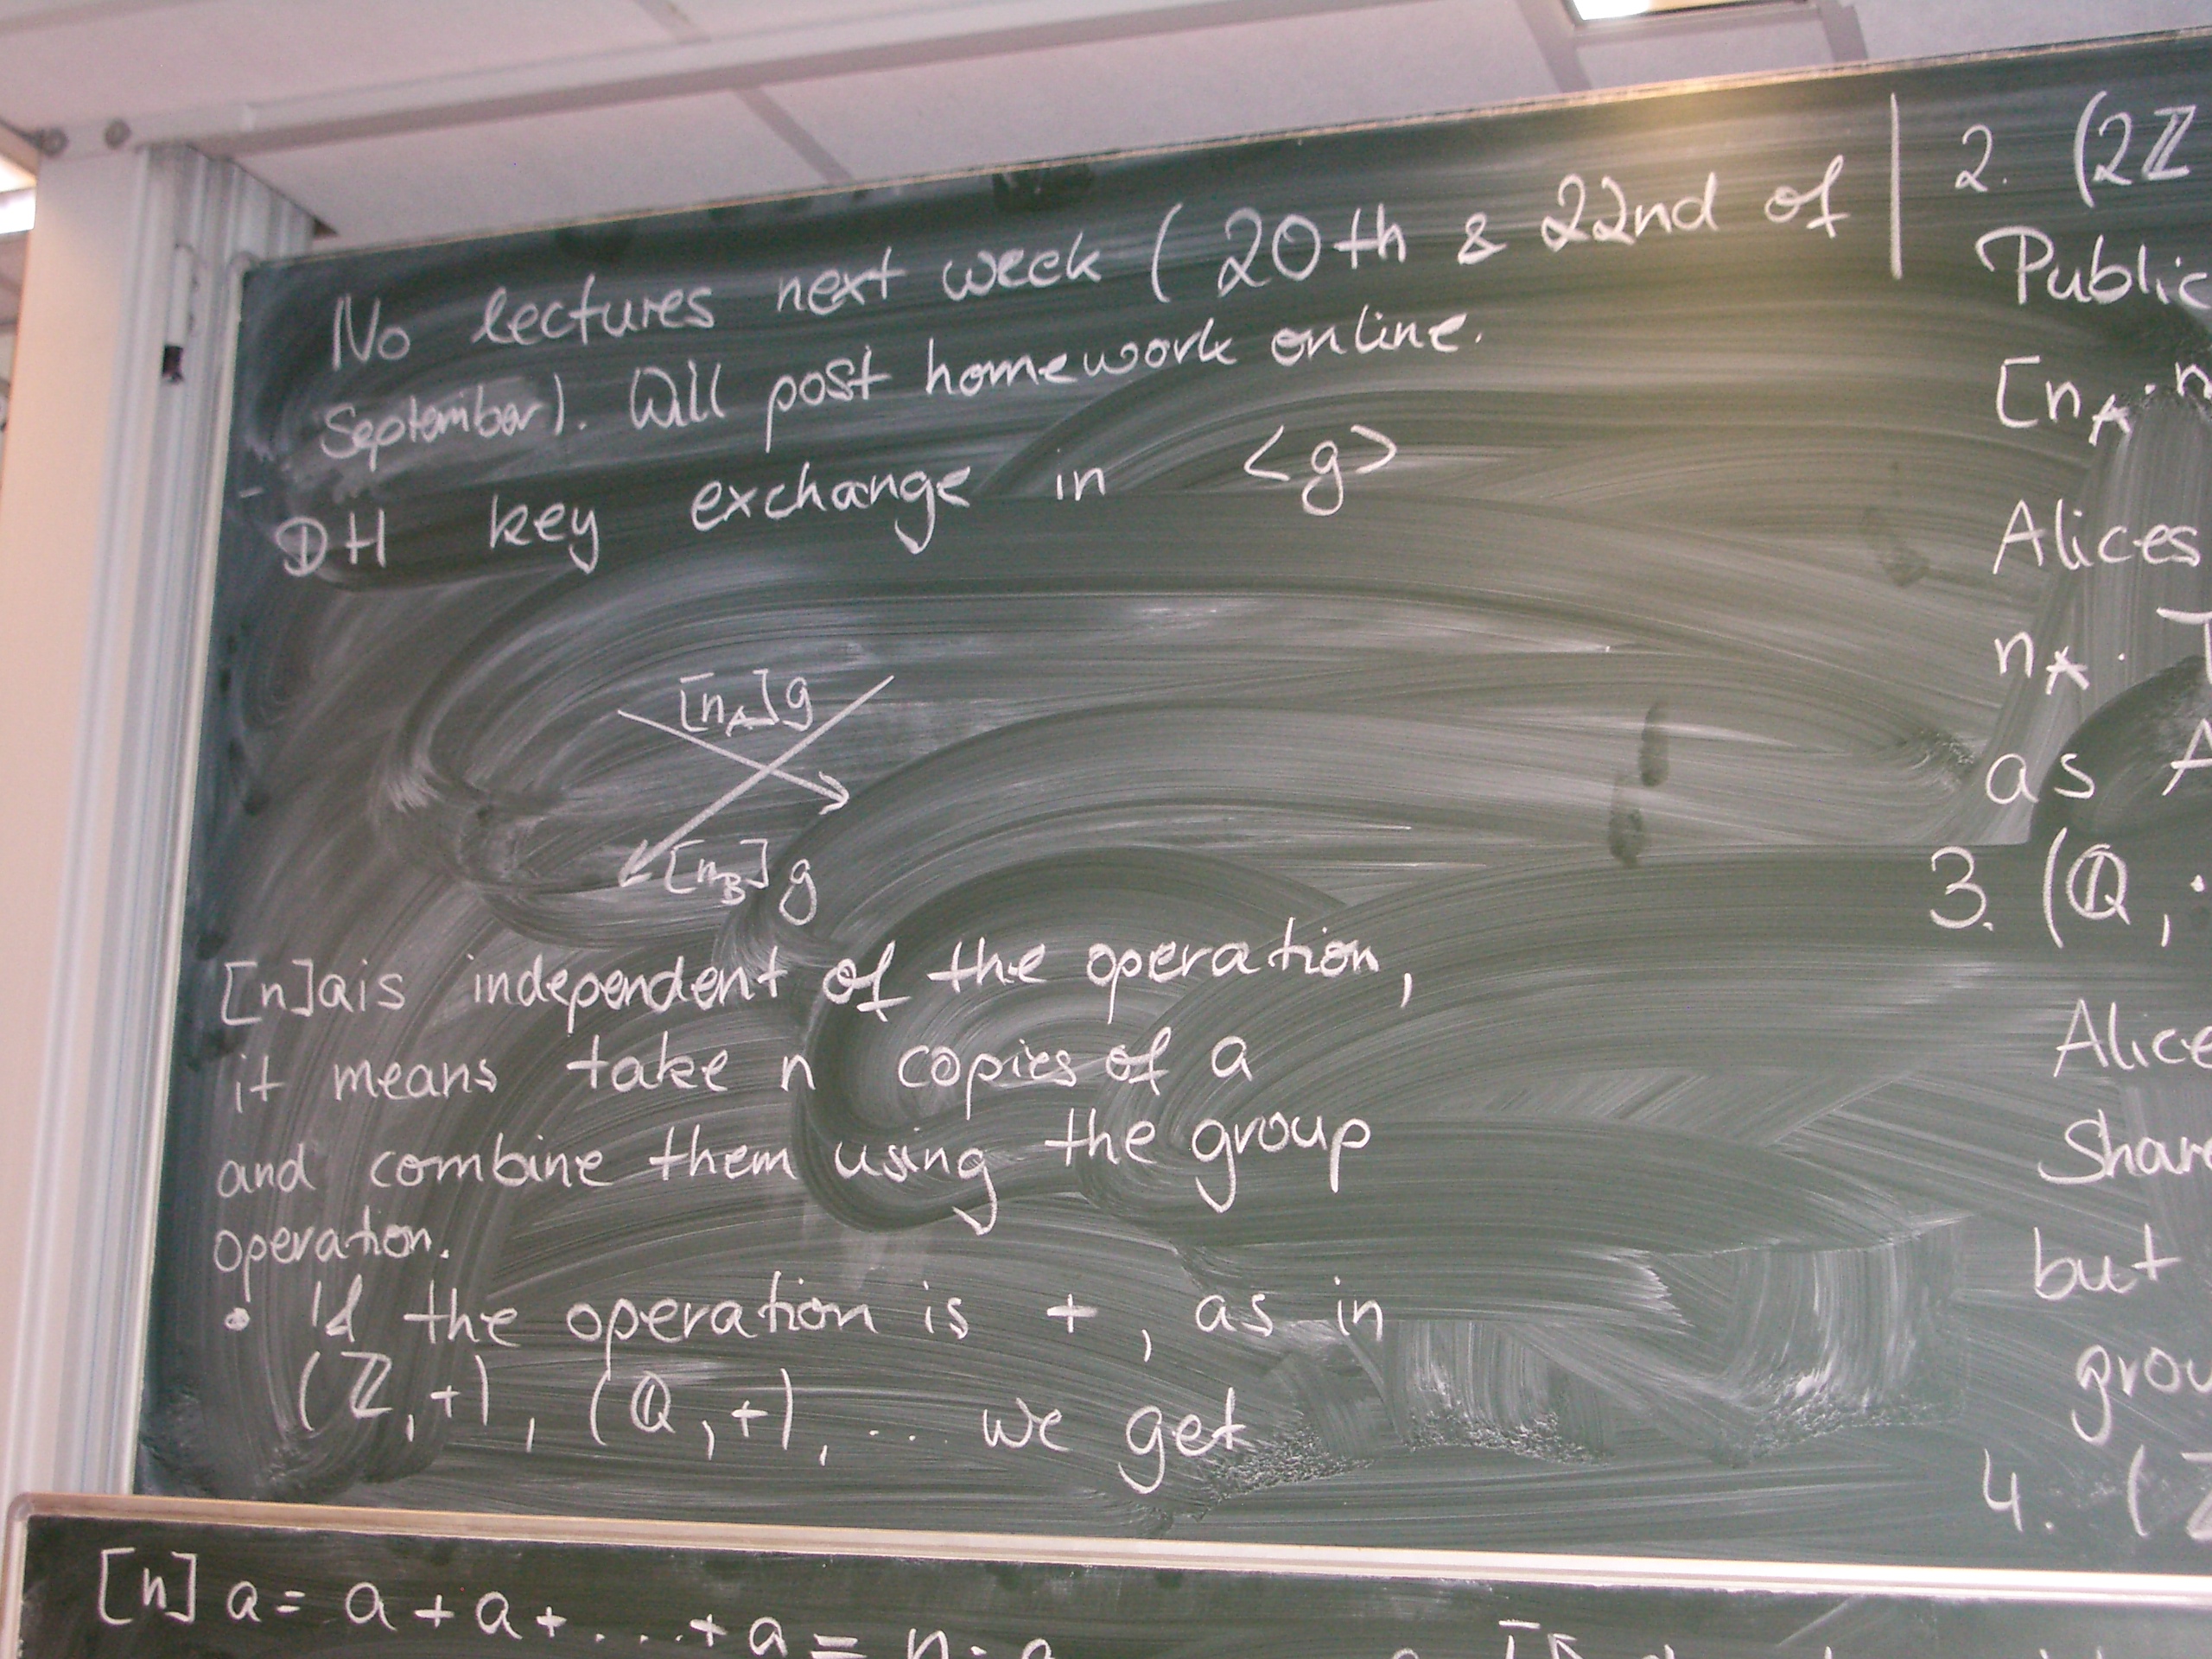 No lectures next week ( 20th & 22nd of
September). Will post homework online.
DH key exchange in <g>
[n_A]g
[n_B]g
[n]a is independent of the operation,
it means take n copies of a
and combine them using the group
operation.
• If the operation is + , as in
(ℤ,+), (ℚ,+), ... we get
[n] a = a + a + ... + a = n · a
2. (2ℤ
Public
[n_A · n
Alices
n_A ·
as A
3. (ℚ, ·
Alice
Share
but
grou
4. (ℤ